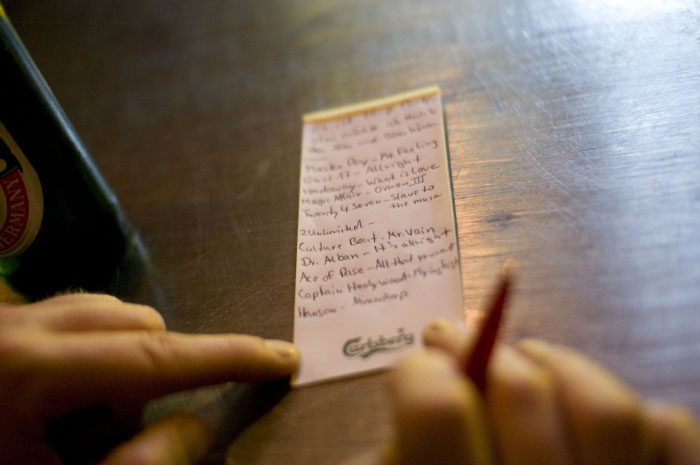 Marky Boy - No Feeling
East 17 - Allright
Haddaway - What is Love
Magic Affair - Omen III
Twenty 4 Seven - Slave to
the music
2 Unlimited -
Culture Beat - Mr. Vain
Dr. Alban - It's alright
Ace of Base - All that you want
Captain Hollywood - Flying high
Hanson - Mmmbop
Carlsberg
GERMANY